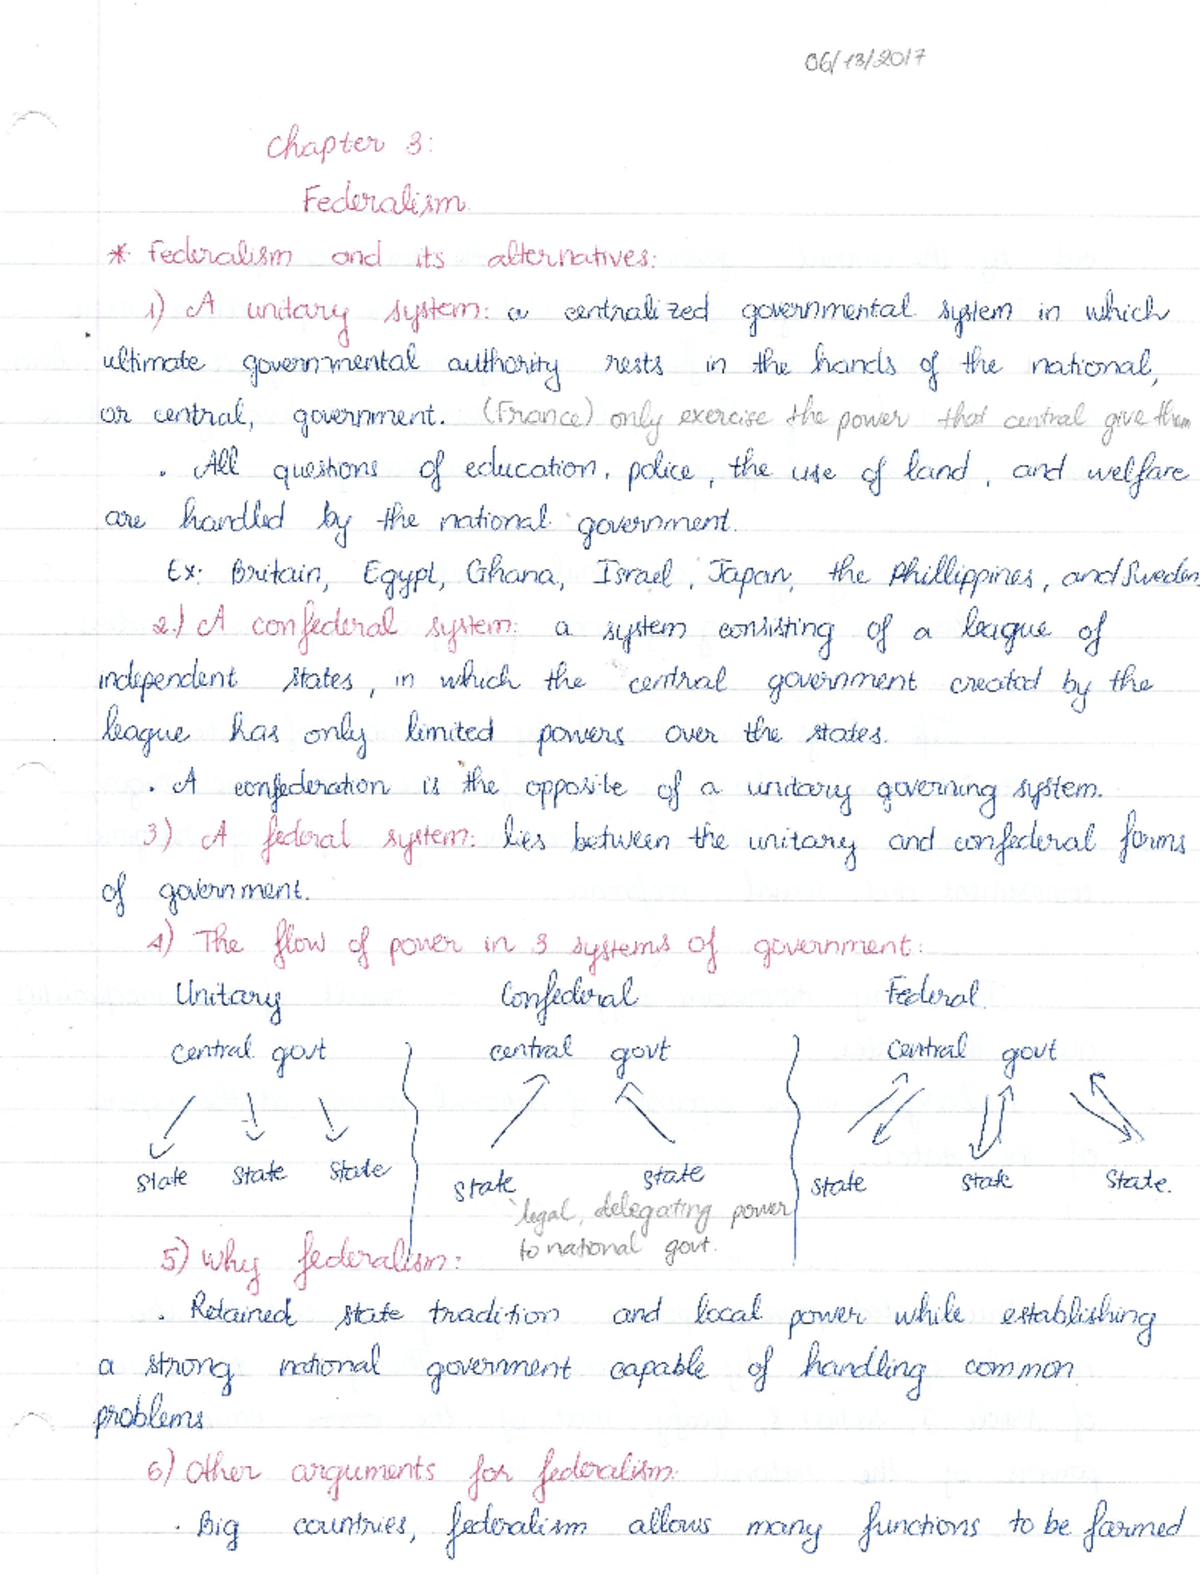 06/13/2017
Chapter 3:
Federalism
* Federalism and its alternatives:
1) A unitary system: a centralized governmental system in which
ultimate governmental authority rests in the hands of the national,
or central, government. (France) only exercise the power that central give them
. All questions of education, police, the use of land, and welfare
are handled by the national government.
Ex: Britain, Egypt, Ghana, Israel, Japan, the Phillippines, and Sweden
2) A confederal system: a system consisting of a league of
independent states, in which the central government created by the
league has only limited powers over the states.
. A confederation is the opposite of a unitary governing system.
3) A federal system: lies between the unitary and confederal forms
of government.
4) The flow of power in 3 systems of government:
Unitary Confederal Federal
central govt central govt Central govt
State State State State State State State State.
legal, delegating power
to national govt.
5) Why federalism:
. Retained state tradition and local power while establishing
a strong national government capable of handling common
problems
6) Other arguments for federalism:
. Big countries, federalism allows many functions to be farmed